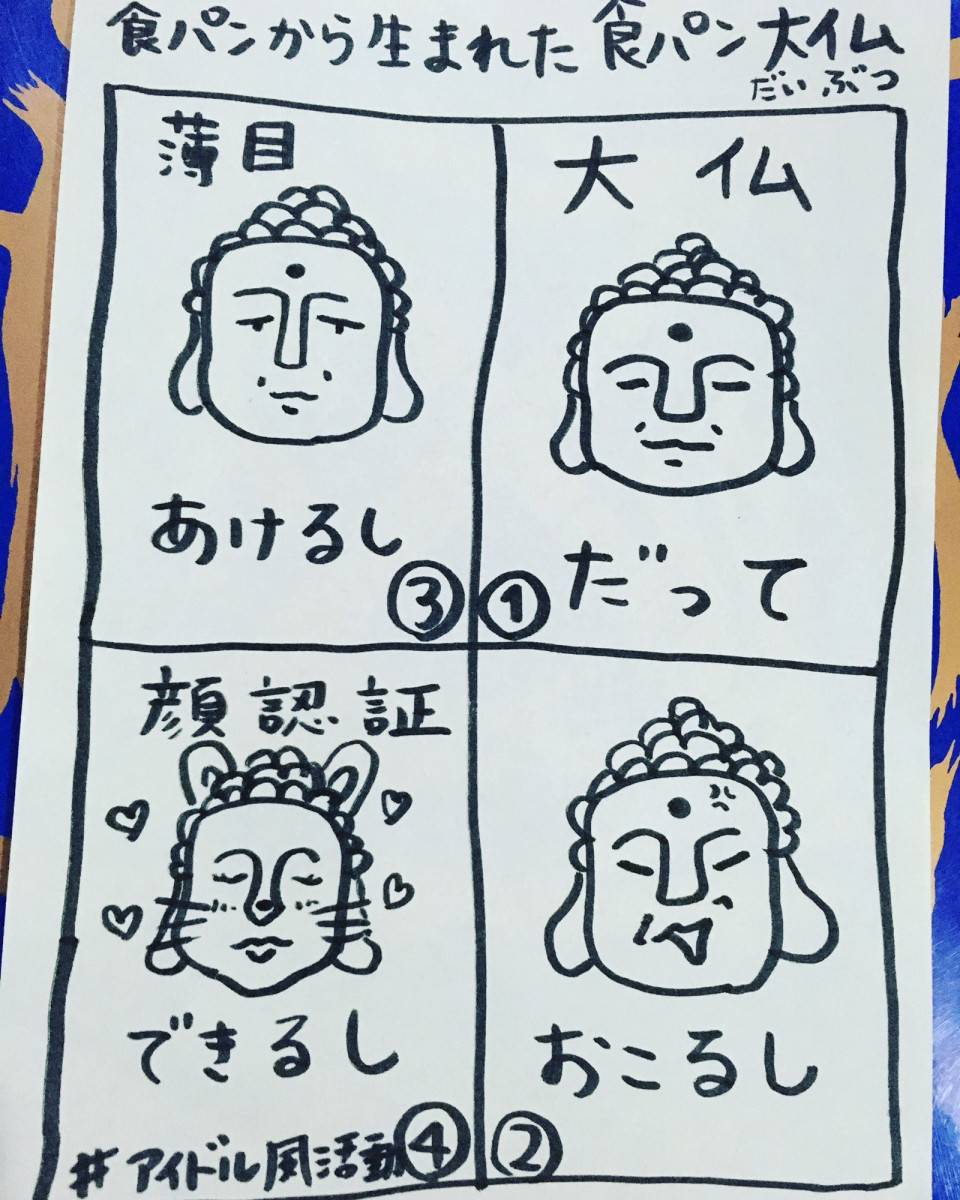 食パンから生まれた 食パン大仏
だいぶつ
大仏
だって
①
おこるし
②
薄目
あけるし
③
顔認証
できるし
④
#アイドル風活動